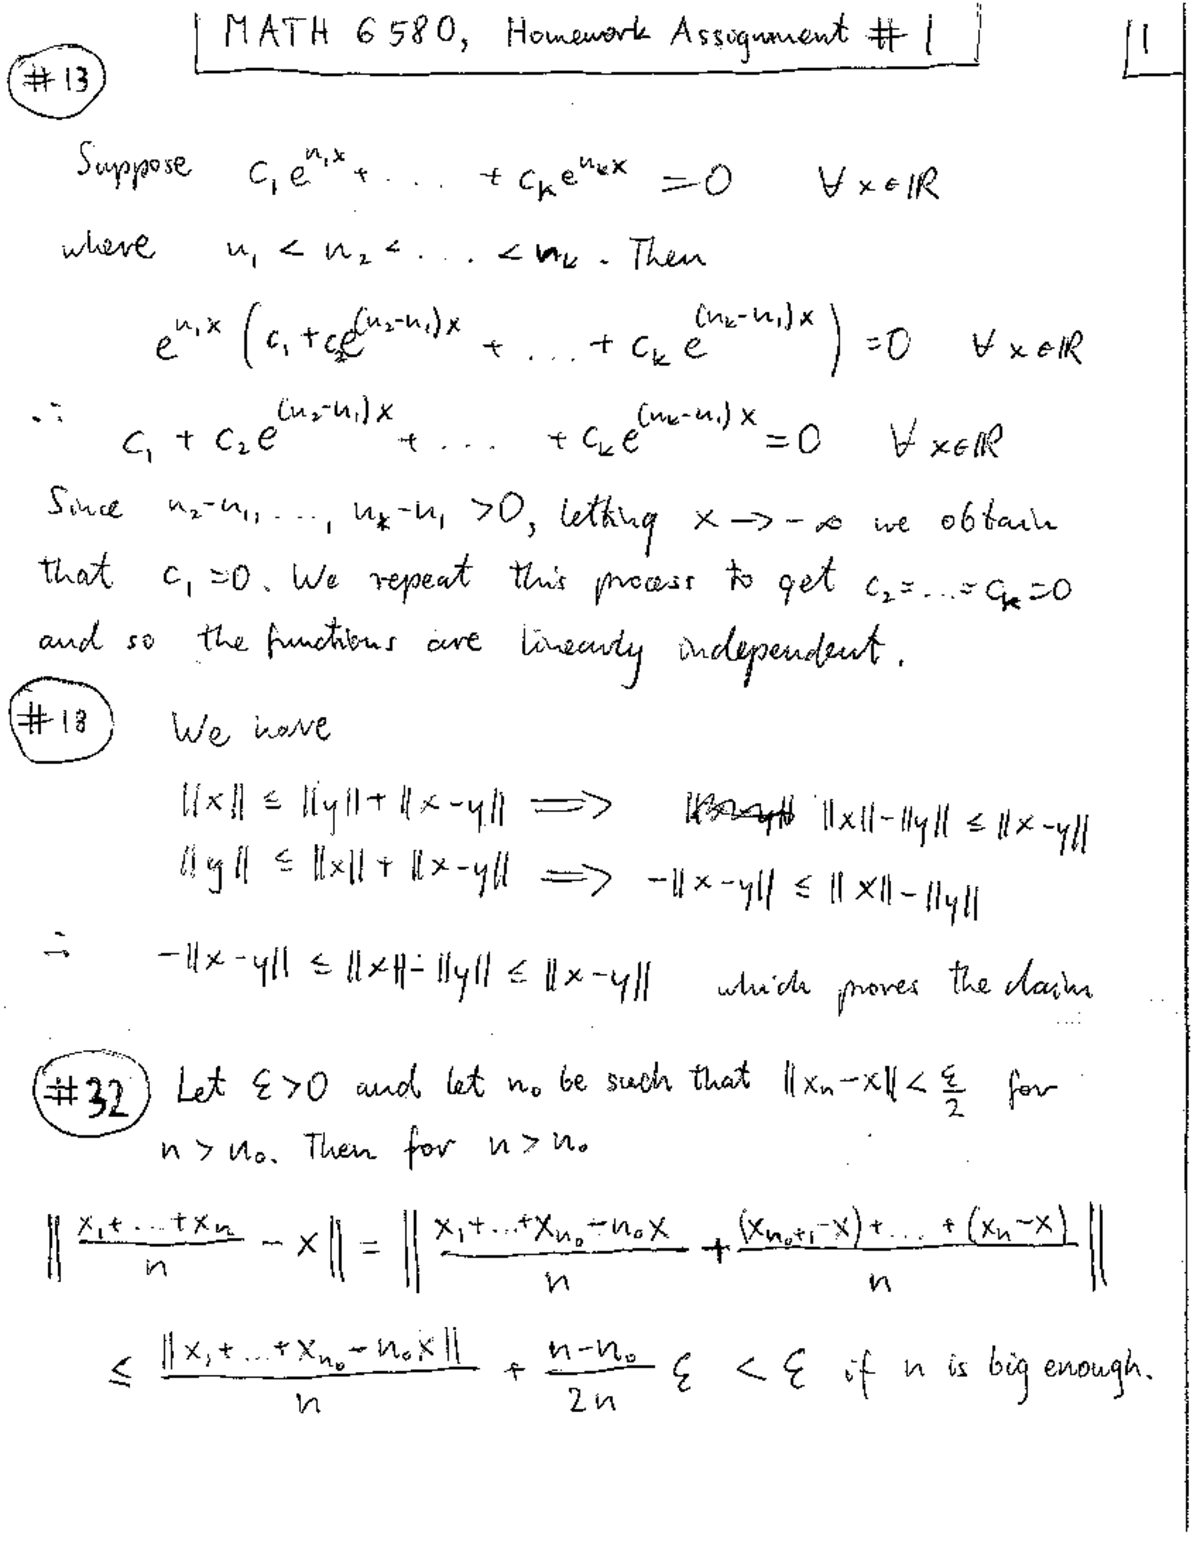 MATH 6580, Homework Assignment # 1
1
#13
Suppose c₁e^{n₁x} + .... + c_k e^{n_k x} = 0 ∀ x ∈ ℝ
where n₁ < n₂ < .... < n_k. Then
e^{n₁x} ( c₁ + c₂e^{(n₂-n₁)x} + .... + c_k e^{(n_k-n₁)x} ) = 0 ∀ x ∈ ℝ
∴ c₁ + c₂e^{(n₂-n₁)x} + .... + c_k e^{(n_k-n₁)x} = 0 ∀ x ∈ ℝ
Since n₂-n₁, ..., n_k-n₁ > 0, letting x → -∞ we obtain
that c₁ = 0. We repeat this process to get c₂ = ... = c_k = 0
and so the functions are linearly independent.
#18 We have
||x|| ≤ ||y|| + ||x-y|| ⟹ ||x|| - ||y|| ≤ ||x-y||
||y|| ≤ ||x|| + ||x-y|| ⟹ -||x-y|| ≤ ||x|| - ||y||
∴ -||x-y|| ≤ ||x|| - ||y|| ≤ ||x-y|| which proves the claim
#32 Let ε > 0 and let n₀ be such that ||x_n - x|| < ε/2 for
n > n₀. Then for n > n₀
|| (x₁ + ... + x_n)/n - x || = || (x₁ + ... + x_{n₀} - n₀x)/n + ((x_{n₀+1} - x) + ... + (x_n - x))/n ||
≤ ||x₁ + ... + x_{n₀} - n₀x||/n + (n-n₀)/2n ε < ε if n is big enough.